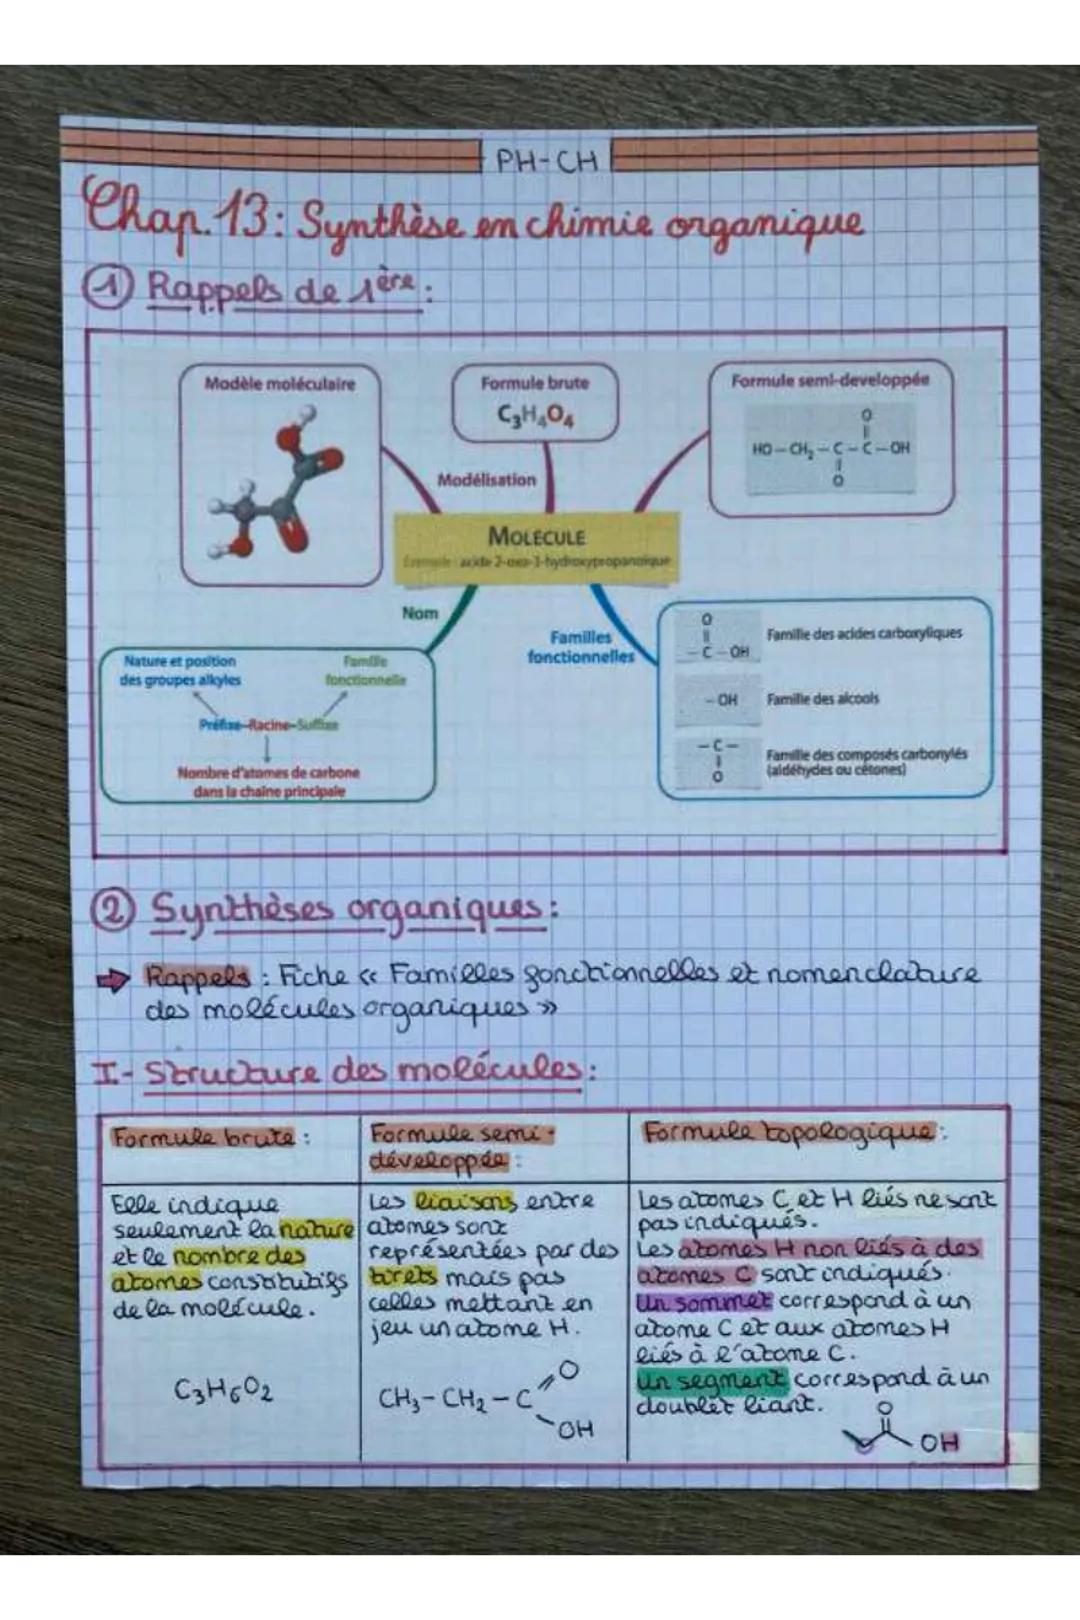 PH-CH
Chap. 13: Synthèse en chimie organique
① Rappels de 1ère :
Modèle moléculaire
Formule brute
C₃H₄O₄
Formule semi-developpée
O
HO–CH₂–C–C–OH
O
Modélisation
MOLÉCULE
Exemple : acide 2-oxo-3-hydroxypropanoïque
Nom
Familles
fonctionnelles
Nature et position
des groupes alkyles
Famille
fonctionnelle
Préfixe–Racine–Suffixe
Nombre d'atomes de carbone
dans la chaîne principale
O
–C–OH
Famille des acides carboxyliques
–OH
Famille des alcools
–C–
O
Famille des composés carbonylés
(aldéhydes ou cétones)
② Synthèses organiques :
⇨ Rappels : Fiche « Familles fonctionnelles et nomenclature
des molécules organiques »
I- Structure des molécules :
Formule brute :
Elle indique
seulement la nature
et le nombre des
atomes constitutifs
de la molécule.
C₃H₆O₂
Formule semi-
développée :
Les liaisons entre
atomes sont
représentées par des
tirets mais pas
celles mettant en
jeu un atome H.
O
CH₃–CH₂–C
OH
Formule topologique :
Les atomes C et H liés ne sont
pas indiqués.
Les atomes H non liés à des
atomes C sont indiqués.
Un sommet correspond à un
atome C et aux atomes H
liés à l'atome C.
Un segment correspond à un
doublet liant.
O
OH